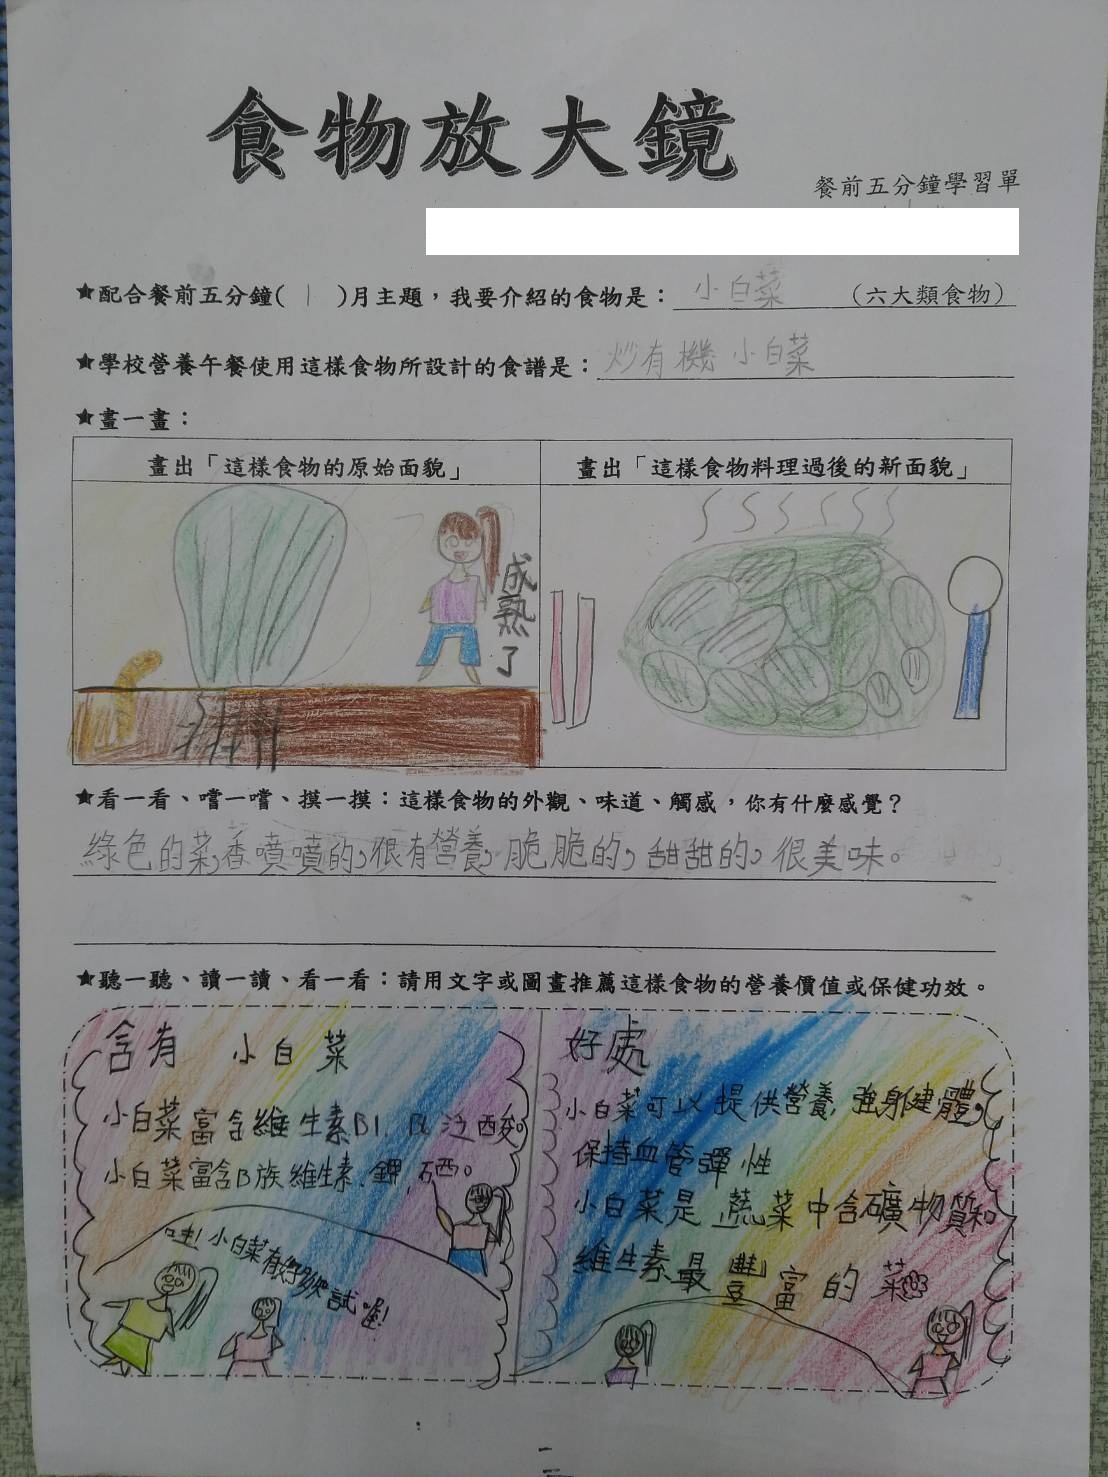 食物放大鏡
餐前五分鐘學習單
★配合餐前五分鐘( 1 )月主題,我要介紹的食物是:小白菜(六大類食物)
★學校營養午餐使用這樣食物所設計的食譜是:炒有機小白菜
★畫一畫:
畫出「這樣食物的原始面貌」
畫出「這樣食物料理過後的新面貌」
成熟了
★看一看、嚐一嚐、摸一摸:這樣食物的外觀、味道、觸感,你有什麼感覺?
綠色的菜,香噴噴的,很有營養,脆脆的,甜甜的,很美味。
★聽一聽、讀一讀、看一看:請用文字或圖畫推薦這樣食物的營養價值或保健功效。
含有 小白菜
小白菜富含維生素B1、 泛酸。
小白菜富含B族維生素、鉀、硒。
哇!小白菜有
試
好處
小白菜可以提供營養,強身健體,
保持血管彈性
小白菜是蔬菜中含礦物質和
維生素最豐富的菜